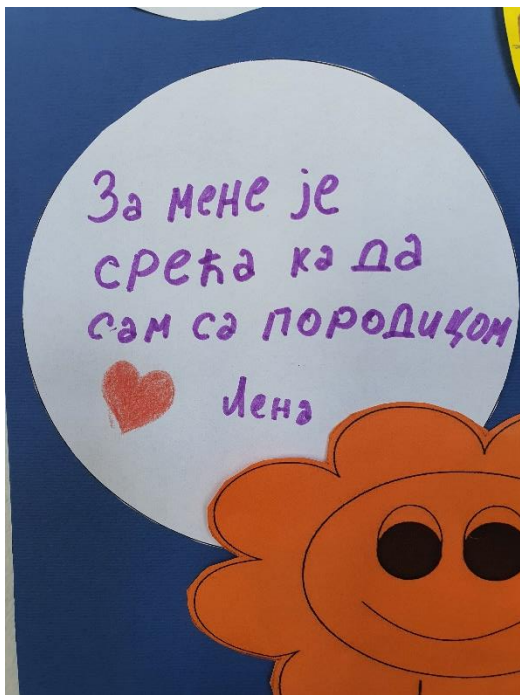 За мене је
срећа када
сам са породицом
Лена